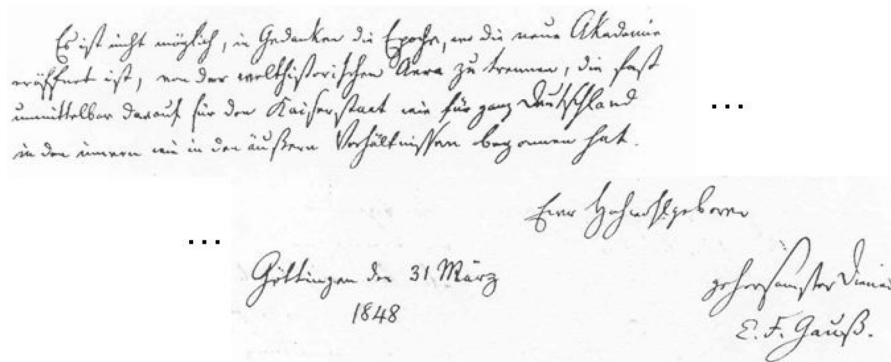 Es ist nicht möglich, in Gedanken die Epoche, wo die neue Akademie
eröffnet ist, von der welthistorischen Aera zu trennen, die fast
unmittelbar darauf für den Kaiserstaat wie für ganz Deutschland
...
in den innern wie in den äußern Verhältnissen begonnen hat.
Euer Hochwohlgeboren
...
Göttingen den 31 März
gehorsamster Diener
1848
C. F. Gauß.